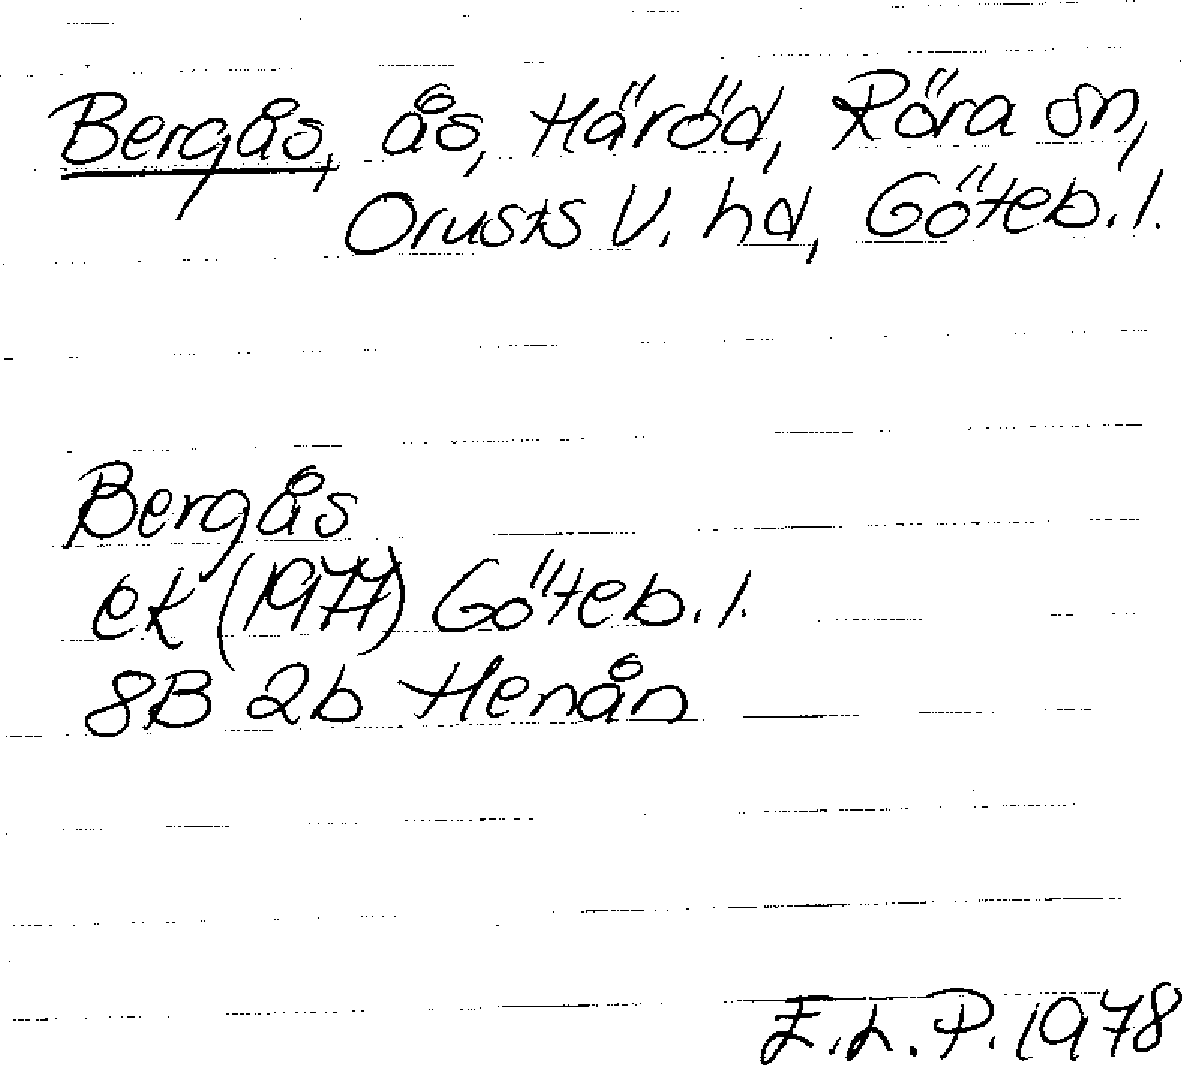 Bergås, ås, Häröd, Röra sn,
Orusts V. hd, Göteb. l.
Bergås
ek (1977) Göteb. l.
8B 2b Henån
E. L. P. 1978